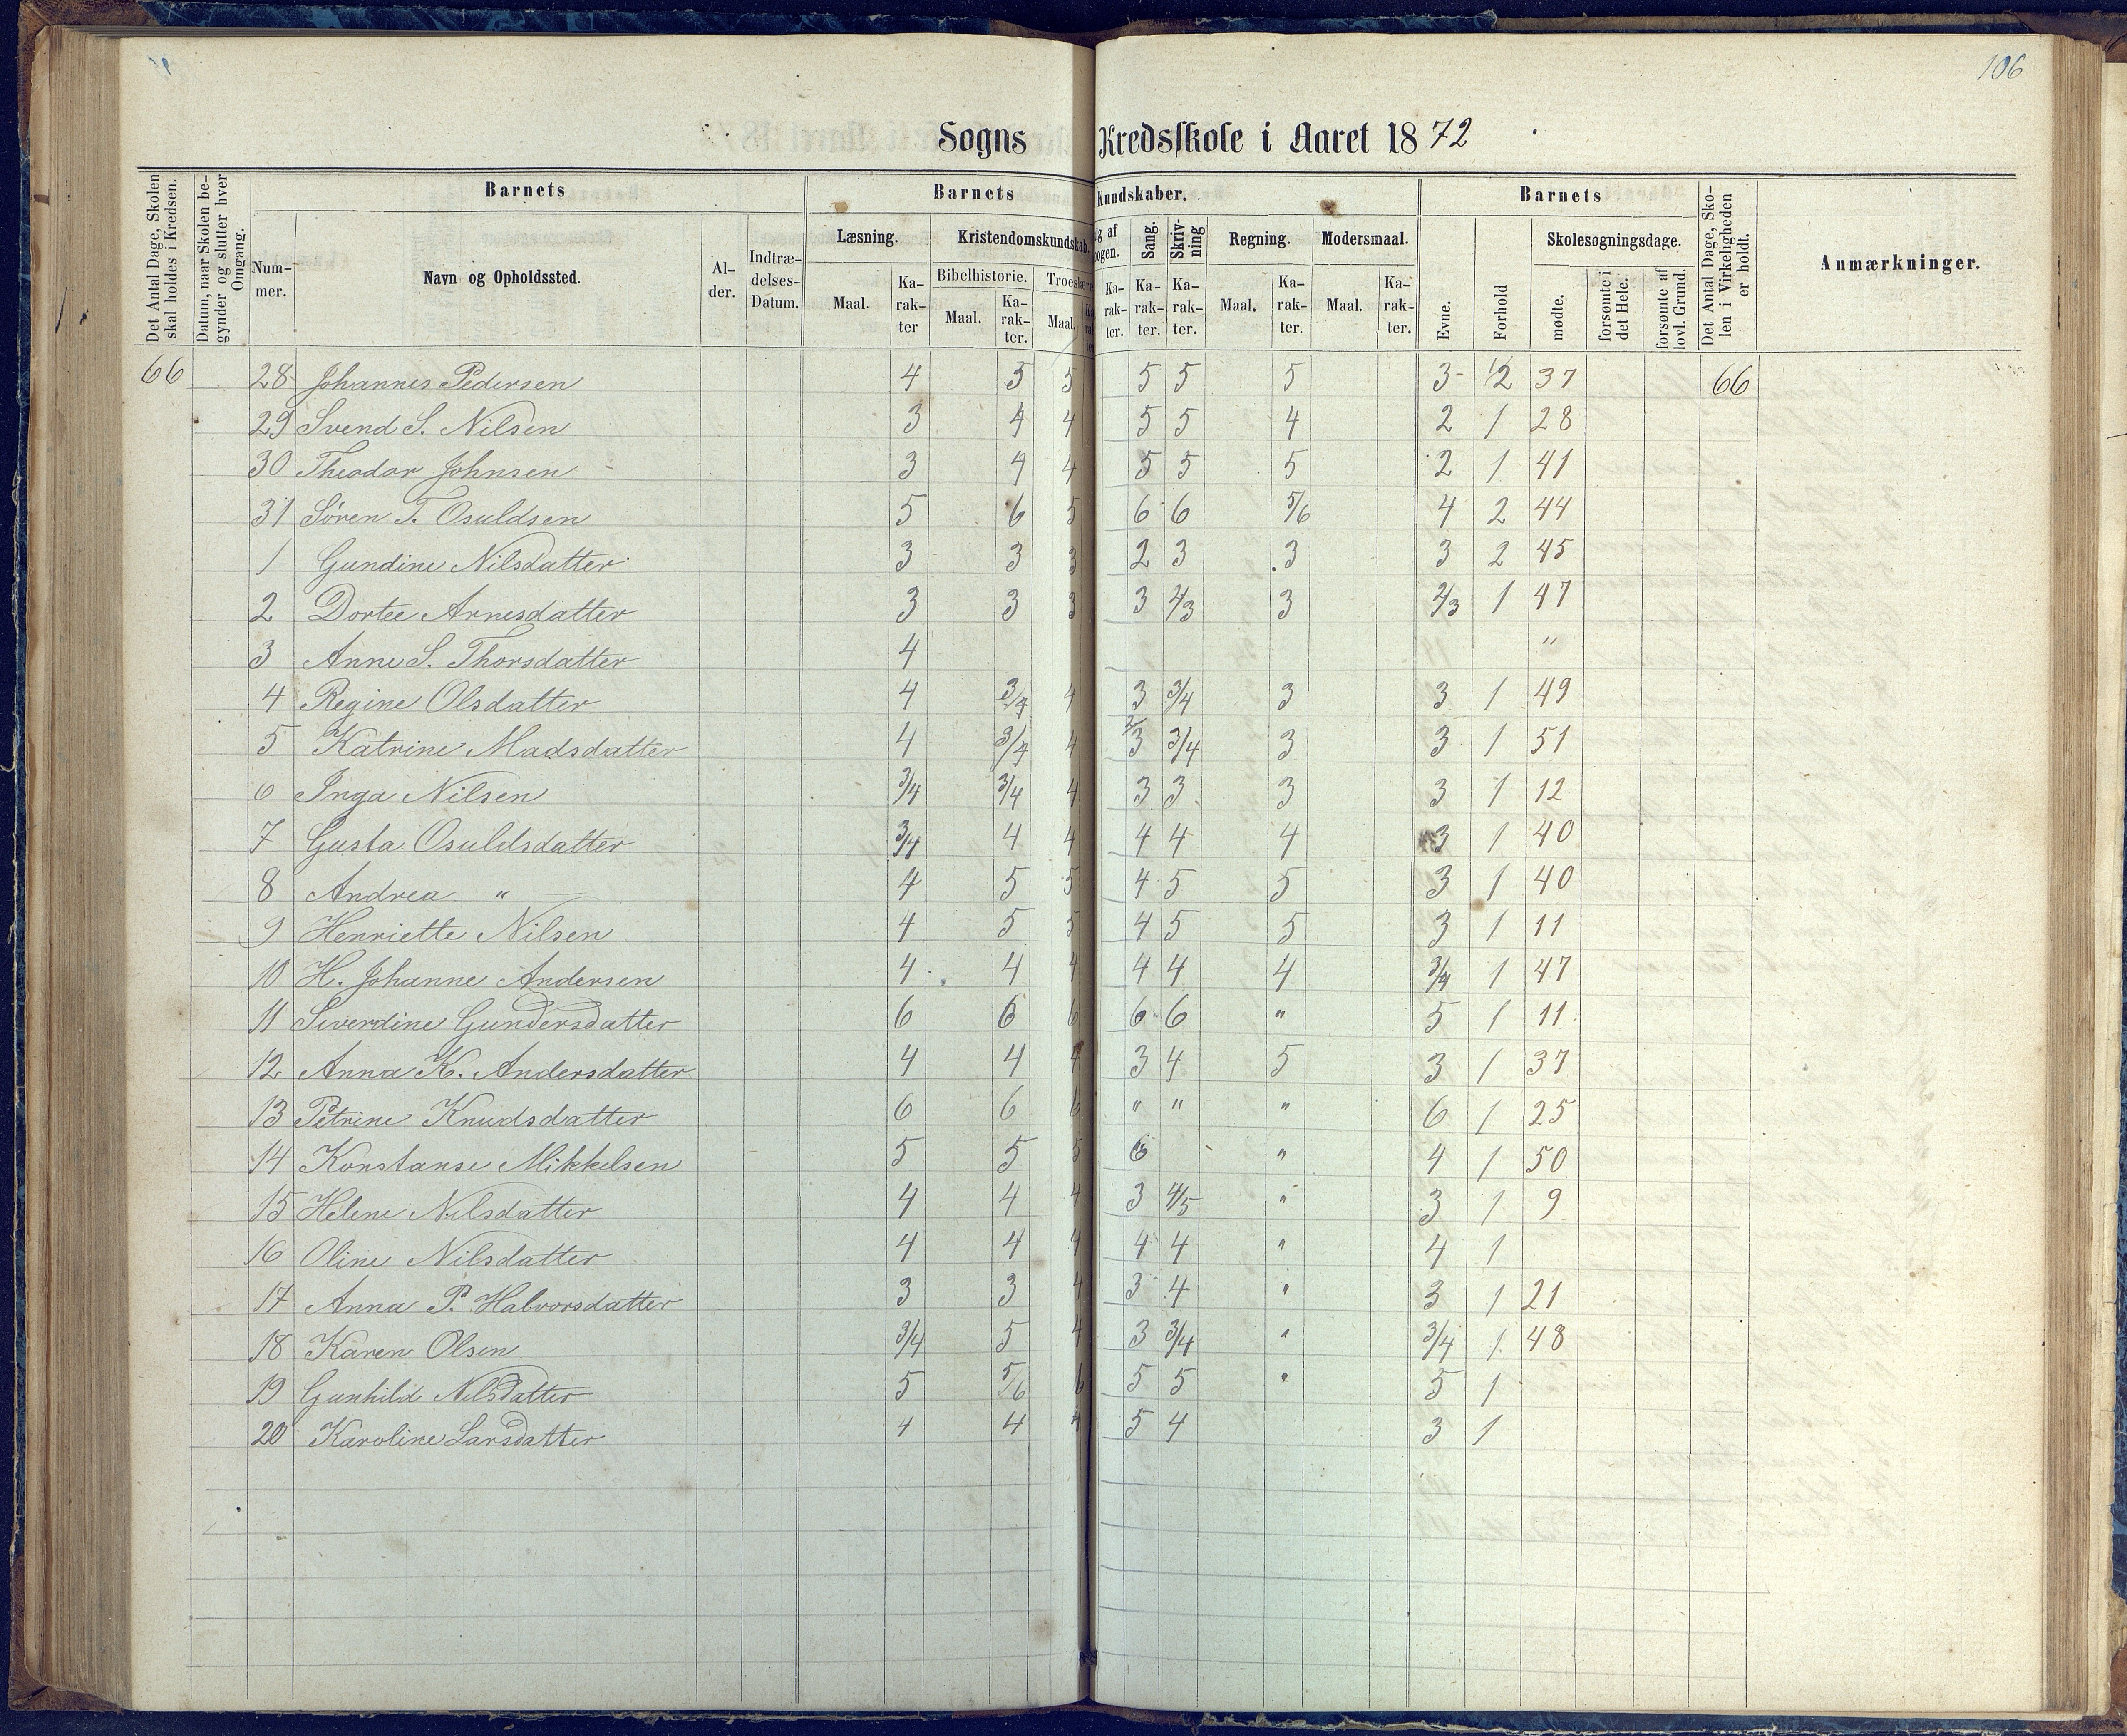 106
Sogns Kredsskole i Aaret 1872
Det Antal Dage, Skolen skal holdes i Kredsen.
Datum, naar Skolen begynder og slutter hver Omgang.
Barnets
Nummer.
Navn og Opholdssted.
Alder.
Indtrædelses-Datum.
Barnets Kundskaber.
Læsning.
Maal.
Karakter
Kristendomskundskab.
Bibelhistorie.
Maal.
Karakter.
Troeslære
Maal.
lg af
ogen.
Karakter.
Sang.
Karakter.
Skrivning
Karakter.
Regning.
Maal.
Karakter.
Modersmaal.
Maal.
Karakter.
Barnets
Evne.
Forhold
Skolesøgningsdage.
mødte.
forsømte i det Hele.
forsømte af lovl. Grund.
Det Antal Dage, Skolen i Virkeligheden er holdt.
Anmærkninger.
66 28 Johannes Pedersen 4 5 5 5 5 5 3 1/2 37 66
29 Svend S. Nilsen 3 4 4 5 5 4 2 1 28
30 Theodor Johnsen 3 4 4 5 5 5 2 1 41
31 Sören T. Osuldsen 5 6 5 6 6 5/6 4 2 44
1 Gundine Nilsdatter 3 3 3 2 3 3 3 2 45
2 Dortee Arnesdatter 3 3 3 3 2/3 3 2/3 1 47
3 Anne S. Thorsdatter 4 "
4 Regine Olsdatter 4 3/4 4 3 3/4 3 3 1 49
5 Katrine Madsdatter 4 3/4 4 2/3 3/4 3 3 1 51
6 Inga Nilsen 3/4 3/4 4 3 3 3 3 1 12
7 Gusta Osuldsdatter 3/4 4 4 4 4 4 3 1 40
8 Andrea " 4 5 5 4 5 5 3 1 40
9 Henriette Nilsen 4 5 5 4 5 5 3 1 11
10 H. Johanne Andersen 4 4 4 4 4 4 3/4 1 47
11 Siverdine Gundersdatter 6 6 6 6 6 " 5 1 11
12 Anna K. Andersdatter 4 4 4 3 4 5 3 1 37
13 Petrine Knudsdatter 6 6 6 " " " 6 1 25
14 Konstanse Mikkelsen 5 5 5 6 " 4 1 50
15 Helene Nilsdatter 4 4 4 3 4/5 " 3 1 9
16 Oline Nilsdatter 4 4 4 4 4 " 4 1
17 Anna P. Halvorsdatter 3 3 4 3 4 " 3 1 21
18 Karen Olsen 3/4 5 4 3 3/4 " 3/4 1 48
19 Gunhild Nilsdatter 5 5/6 6 5 5 " 5 1
20 Karoline Larsdatter 4 4 4 5 4 3 1